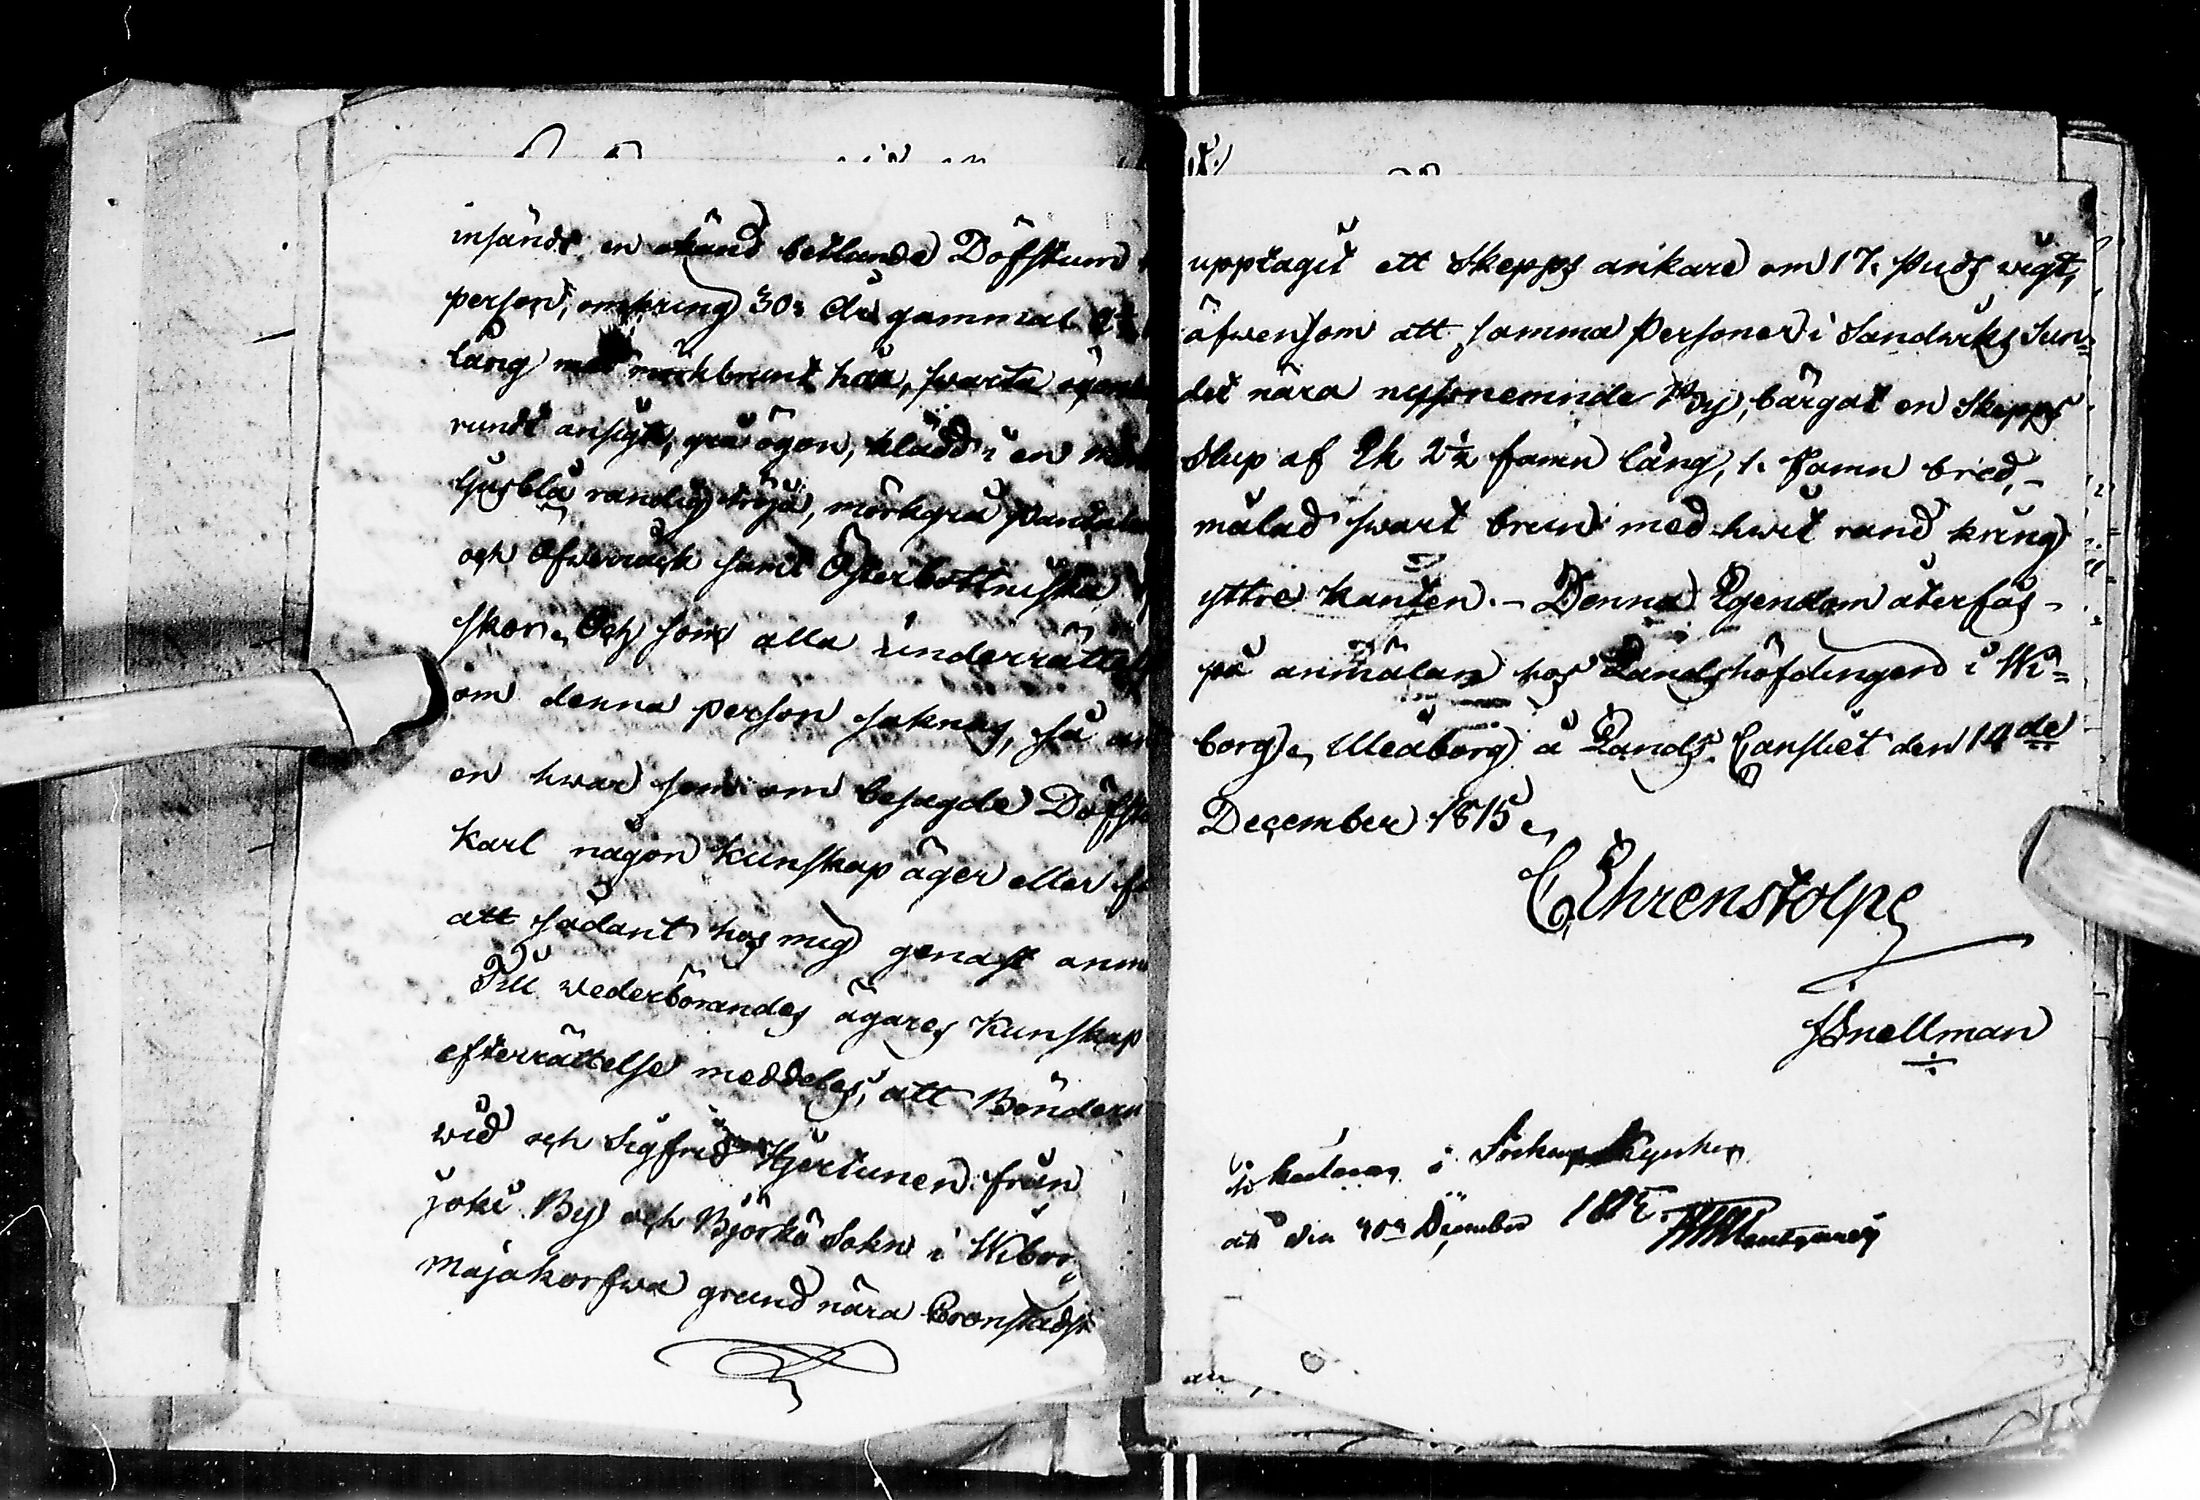 insändt en okänd betlande Döfstum
person, omkring 30. år gammal
lång med mörkbrunt hår, swarta ögon
rundt ansigte, grå ögon, klädd i en
ljusblå randig tröja, mörkgrå Pantal
och Öfwerråck samt Österbottniska
skor. Och som alla underrättel
om denna person saknas, så an
en hwar som om besagde Döfst
Karl någon kunskap äger eller f
att sådant hos mig genast anm
Till wederbörandes ägares Kunskap
efterrättelse meddeles, att Bönderne
wid och Sigfrid Hjertunen från
joki By och Björkö Sokn i Wibor
Majakorfwa grund nära Cronstadt
upptagit ett Skepps ankare om 17. Puds wigt,
äfwensom att samma Personer i Sandwiks Sun=
det nära nyssnemnde By, bärgat en Skepps
Slup af Ek 2½ famn lång, 1. famn bred,
målad swart brun med hwit rand kring
yttre kanten. - Denna Egendom återfås -
på anmälan hos Landshöfdingen i Wi=
borg. Uleåborg å Lands Cansliet den 14de
December 1815.
C Ehrenstolpe
Snellman
i
den 30. December 1815. Montgomery